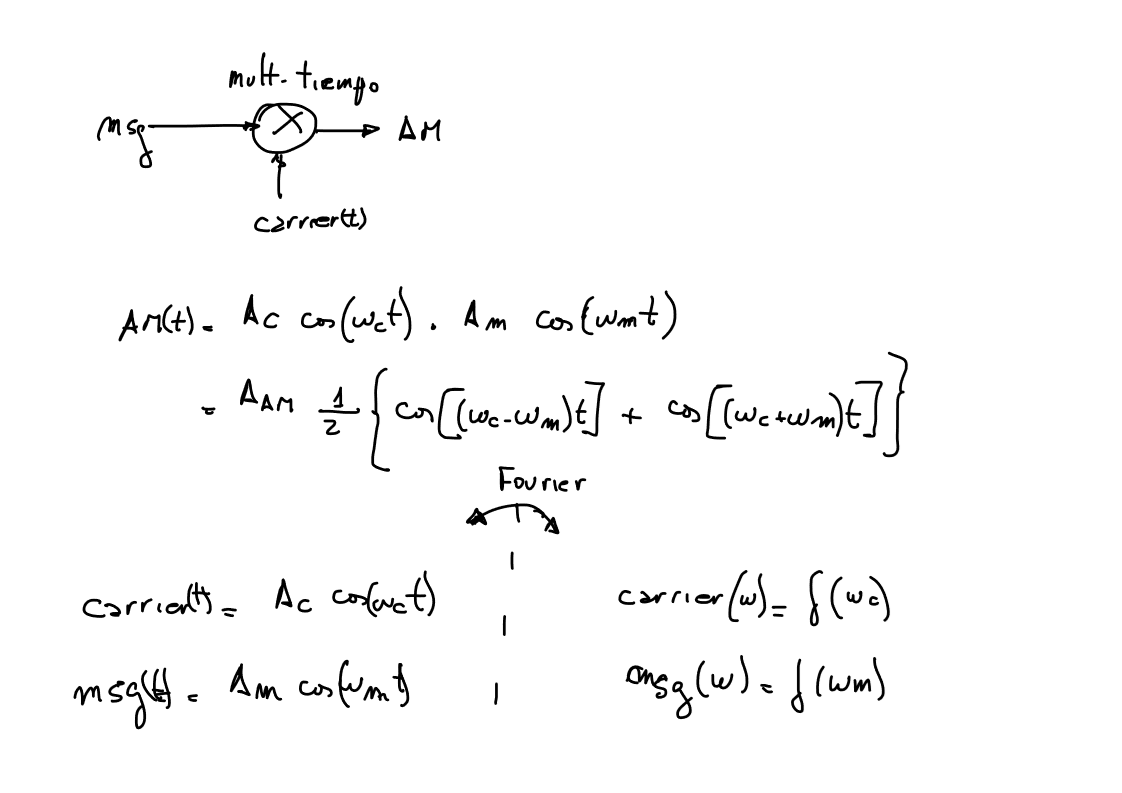 mult. tiempo
msg X AM
carrier(t)
AM(t) = Ac cos(ωct) . Am cos(ωmt)
= AAM 1/2 { cos[(ωc-ωm)t] + cos[(ωc+ωm)t] }
Fourier
carrier(t) = Ac cos(ωct) carrier(ω) = f(ωc)
msg(t) = Am cos(ωmt) msg(ω) = f(ωm)